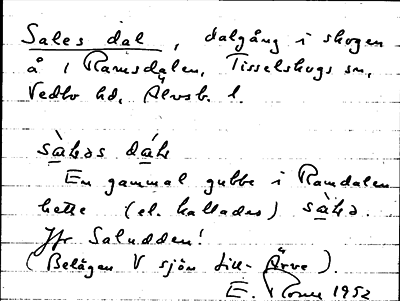 Sales dal, dalgång i skogen
å i Ramsdalen, Tisselskogs sn,
Vedbo hd, Älvsb. l.
sàl̥əs dál̥
En gammal gubbe i Ramdalen
hette (el. kallades) sàl̥ə.
Jfr Saludden!
(Belägen V sjön Lill-Ärve).
E. 1952